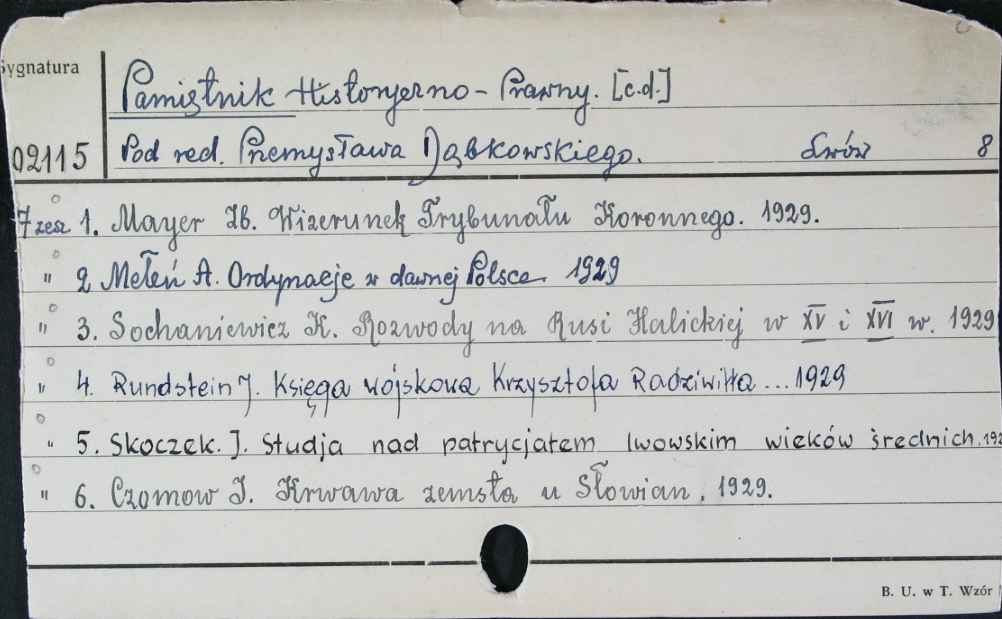 Sygnatura
Pamiętnik Historyczno-Prawny. [c.d.]
02115 Pod red. Przemysława Dąbkowskiego. Lwów 8
7 zesz 1. Mayer Zb. Wizerunek Trybunału Koronnego. 1929.
" 2 Meleń A. Ordynacje w dawnej Polsce. 1929
" 3. Sochaniewicz K. Rozwody na Rusi Halickiej w XV i XVI w. 1929
" 4. Rundstein J. Księga wojskowa Krzysztofa Radziwiłła ... 1929
" 5. Skoczek. J. Studja nad patrycjatem lwowskim wieków średnich. 192
" 6. Czomow J. Krwawa zemsta u Słowian. 1929.
B. U. w T. Wzór